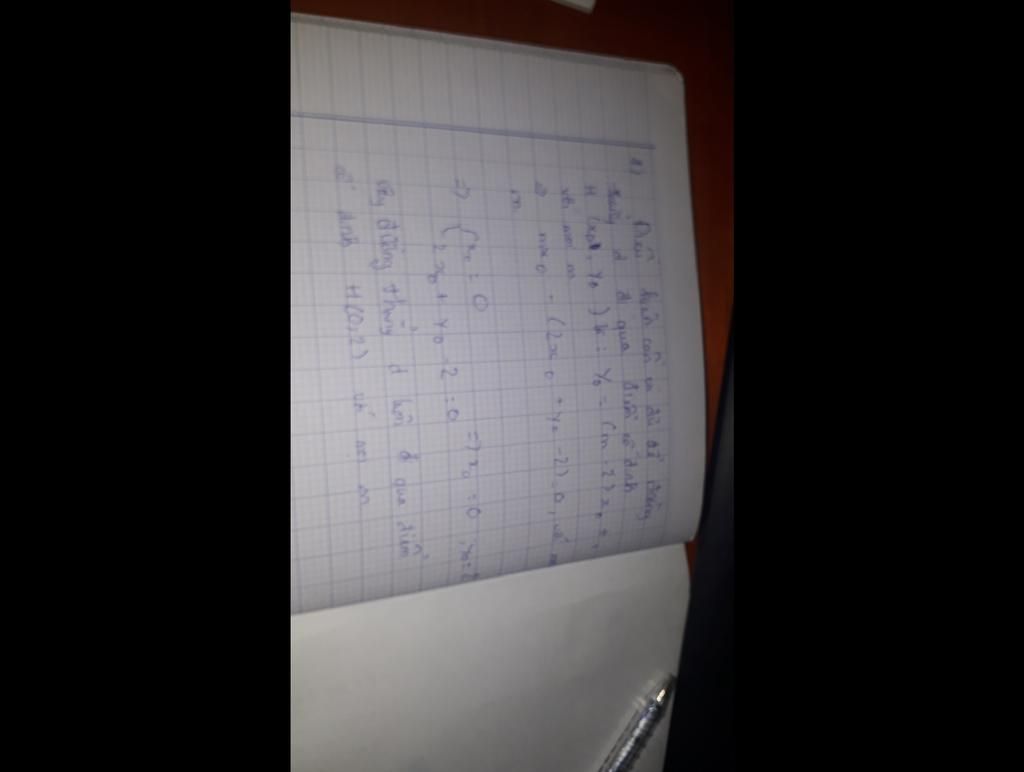 a) Điều kiện cần và đủ để đường
thẳng d đi qua điểm cố định
H (x₀, y₀) là: y₀ = (m-2)x₀ +
với mọi m
=> mx₀ - (2x₀ + y₀ -2)=0, với
m
=> { x₀ = 0
2x₀ + y₀ -2 =0 => x₀ =0, y₀=2
Vậy đường thẳng d luôn đi qua điểm
cố định H(0,2) với mọi m